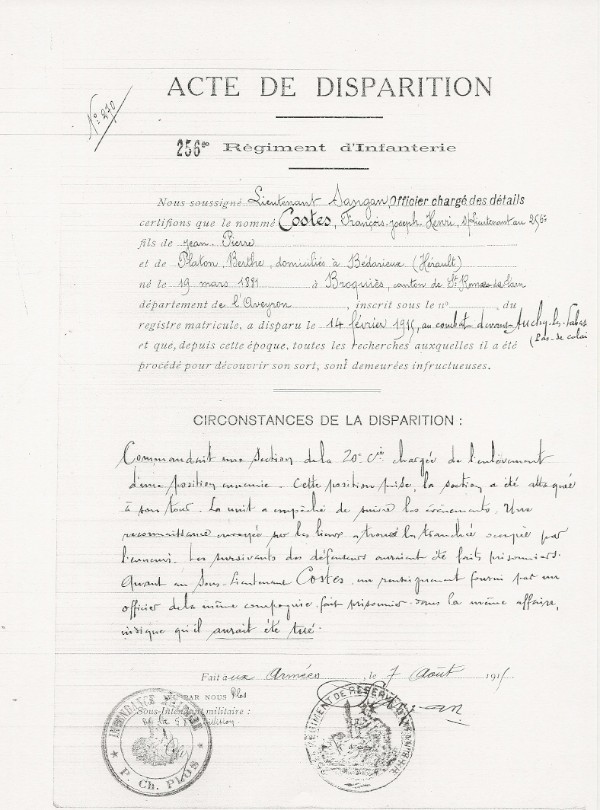 ACTE DE DISPARITION
N° 270
256me Régiment d'Infanterie
Nous soussigné Lieutenant Sangan, Officier chargé des détails
certifions que le nommé Costes, François Joseph Henri, s/Lieutenant au 256e
fils de Jean Pierre
et de Platon, Berthe, domiciliée à Bédarieux (Hérault)
né le 19 mars 1881 à Broquiès, canton de St Rome de Tarn
département de l'Aveyron, inscrit sous le no , du
registre matricule, a disparu le 14 février 1915, au combat devant Auchy-les-Labas
(Pas-de-Calais
et que, depuis cette époque, toutes les recherches auxquelles il a été
procédé pour découvrir son sort, sont demeurées infructueuses.
CIRCONSTANCES DE LA DISPARITION :
Commandait une section de la 20e Cie chargée de l'enlèvement
d'une position ennemie. Cette position prise, la section a été attaquée
à son tour. La nuit a empêché de suivre les événements. Une
reconnaissance envoyée sur les lieux a trouvé la tranchée occupée par
l'ennemi. Les survivants des défenseurs auraient été faits prisonniers.
Quant au Sous-Lieutenant Costes, un renseignement fourni par un
officier de la même compagnie fait prisonnier dans la même affaire,
indique qu'il aurait été tué.
Fait aux Armées, le 7 Août 1915
PAR NOUS Plos
Sous-Intendant militaire :
P. Ch. PLOS
RÉGIMENT DE RÉSERVE